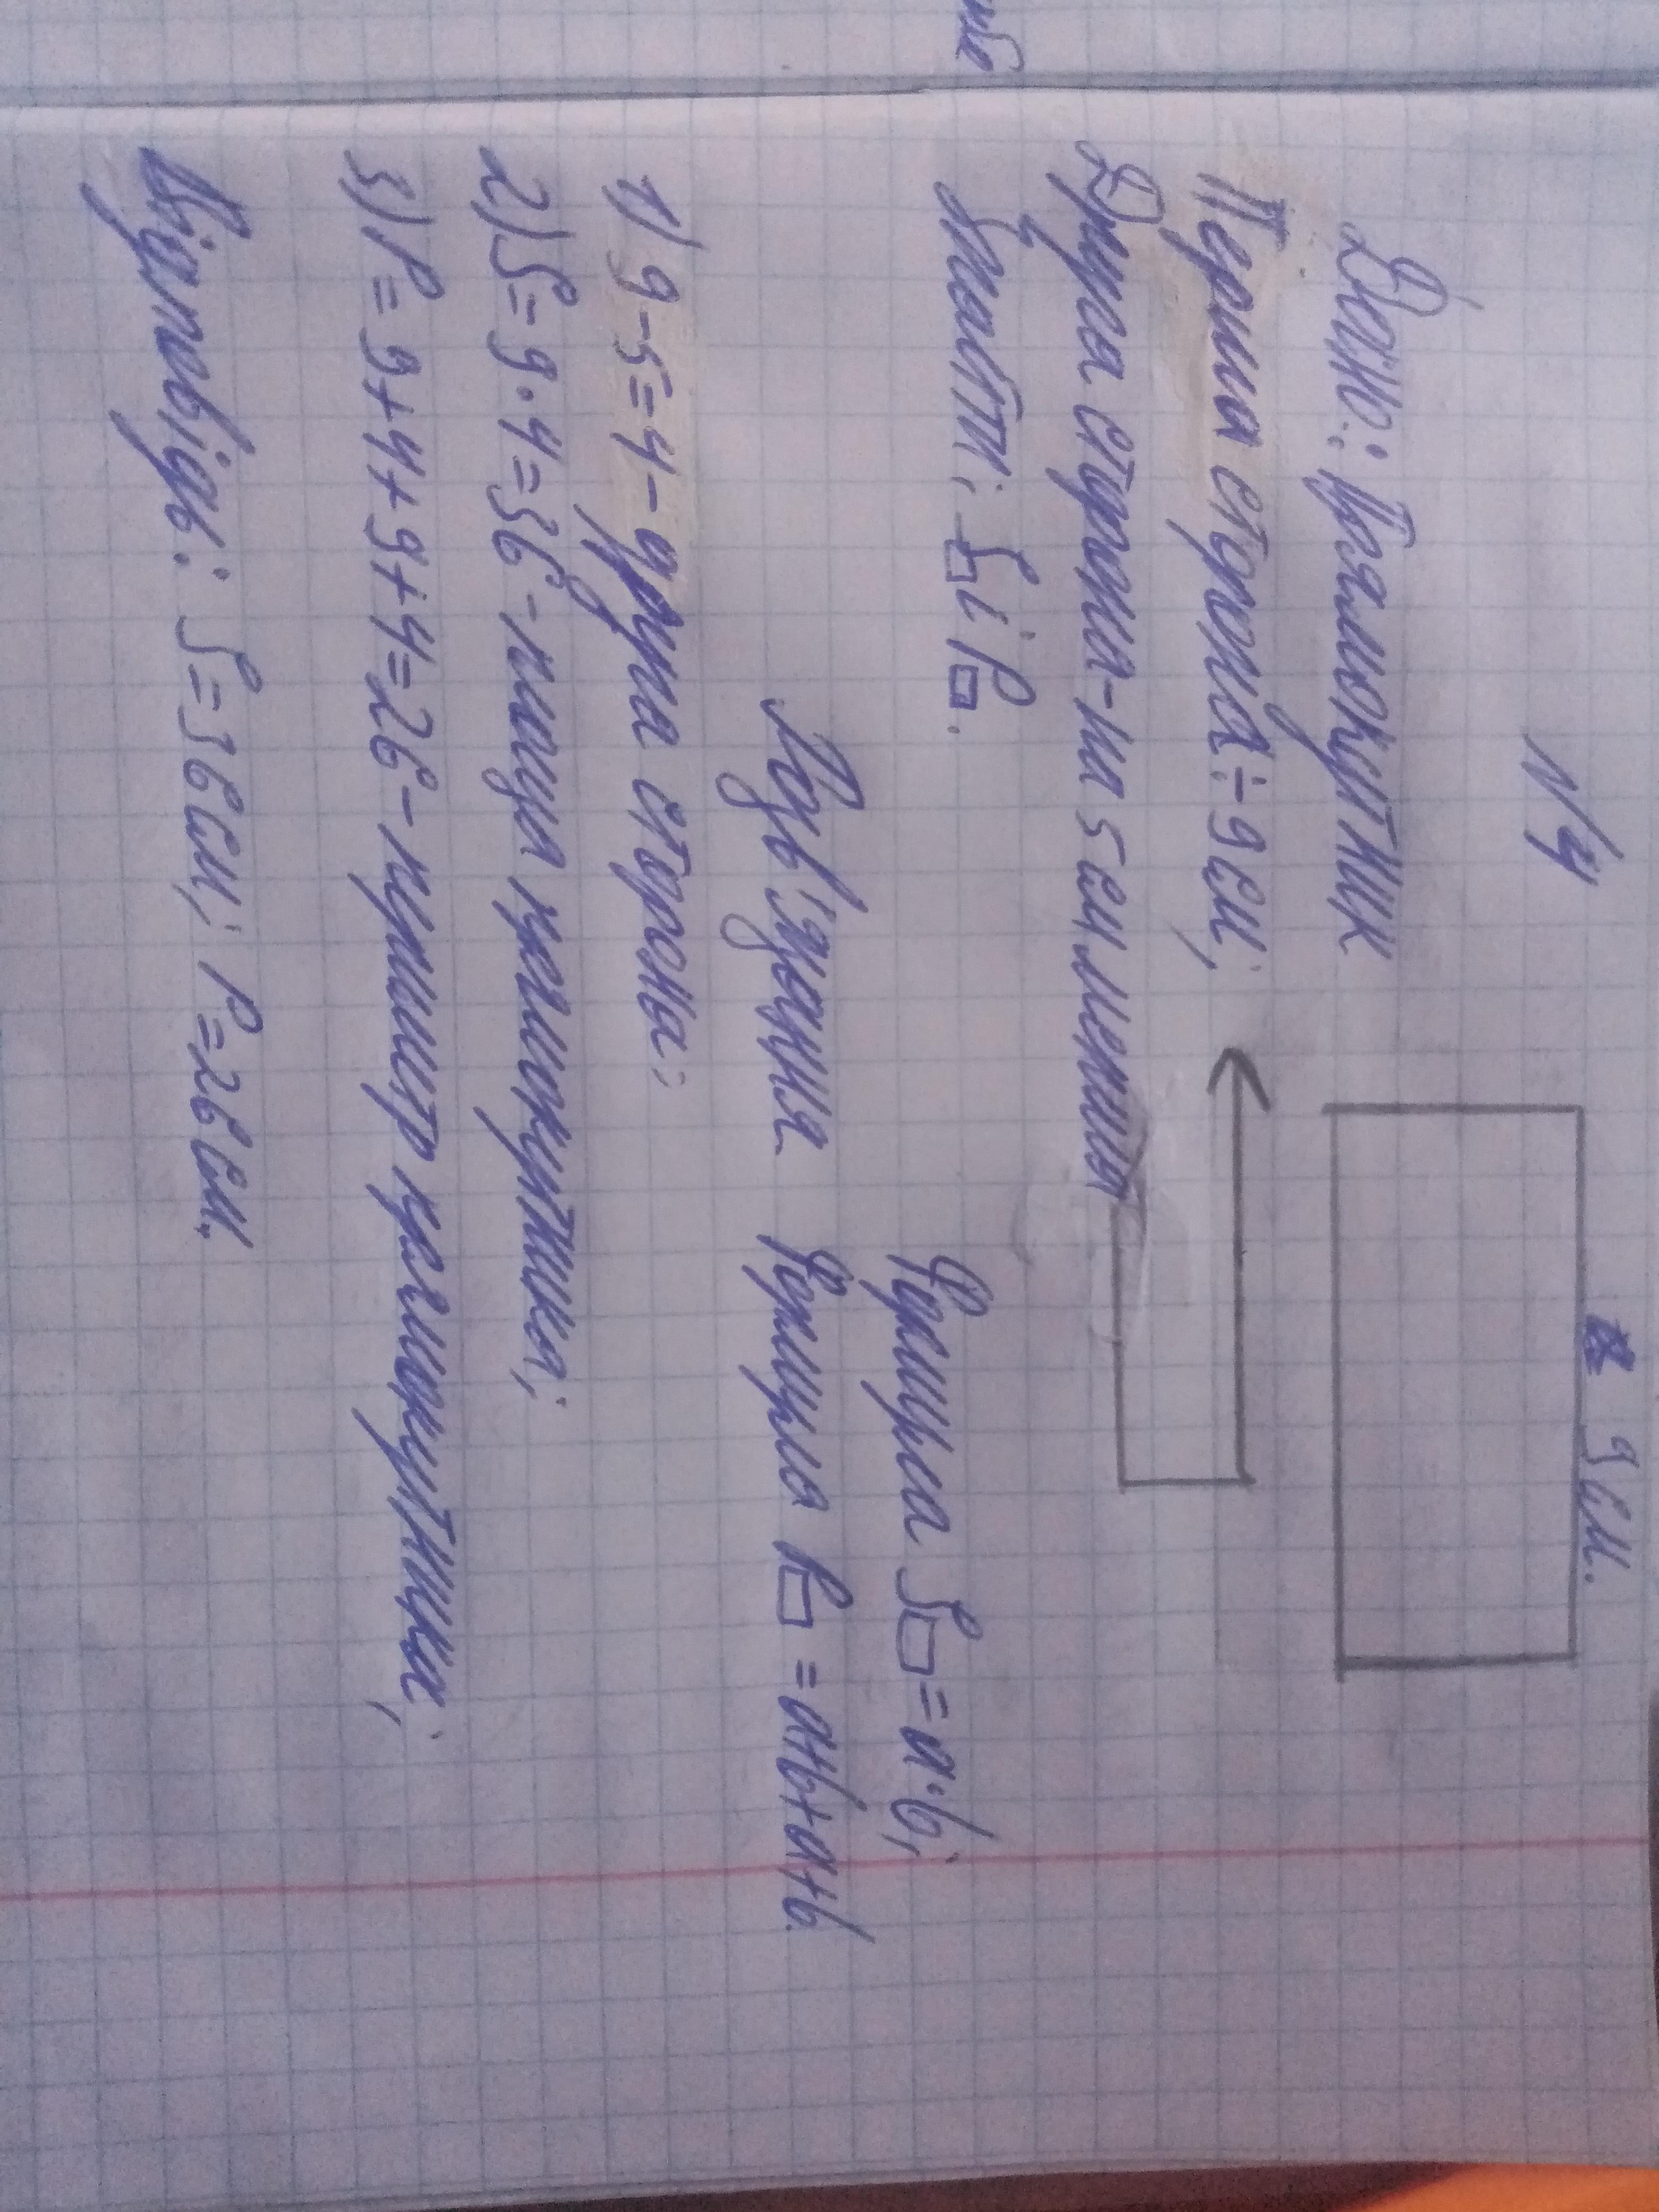 N 4
9 см.
Дано: прямокутник
Перша сторона - 9 см;
Друга сторона - на 5 см менша
Знайти: S□ і P□.
Формула S□ = a·b;
Розв'язання Формула P□ = a+b+a+b.
1) 9-5=4 - друга сторона;
2) S=9·4=36 - площа прямокутника;
3) P=9+4+9+4=26 - периметр прямокутника;
Відповідь: S=36 см; P=26 см.